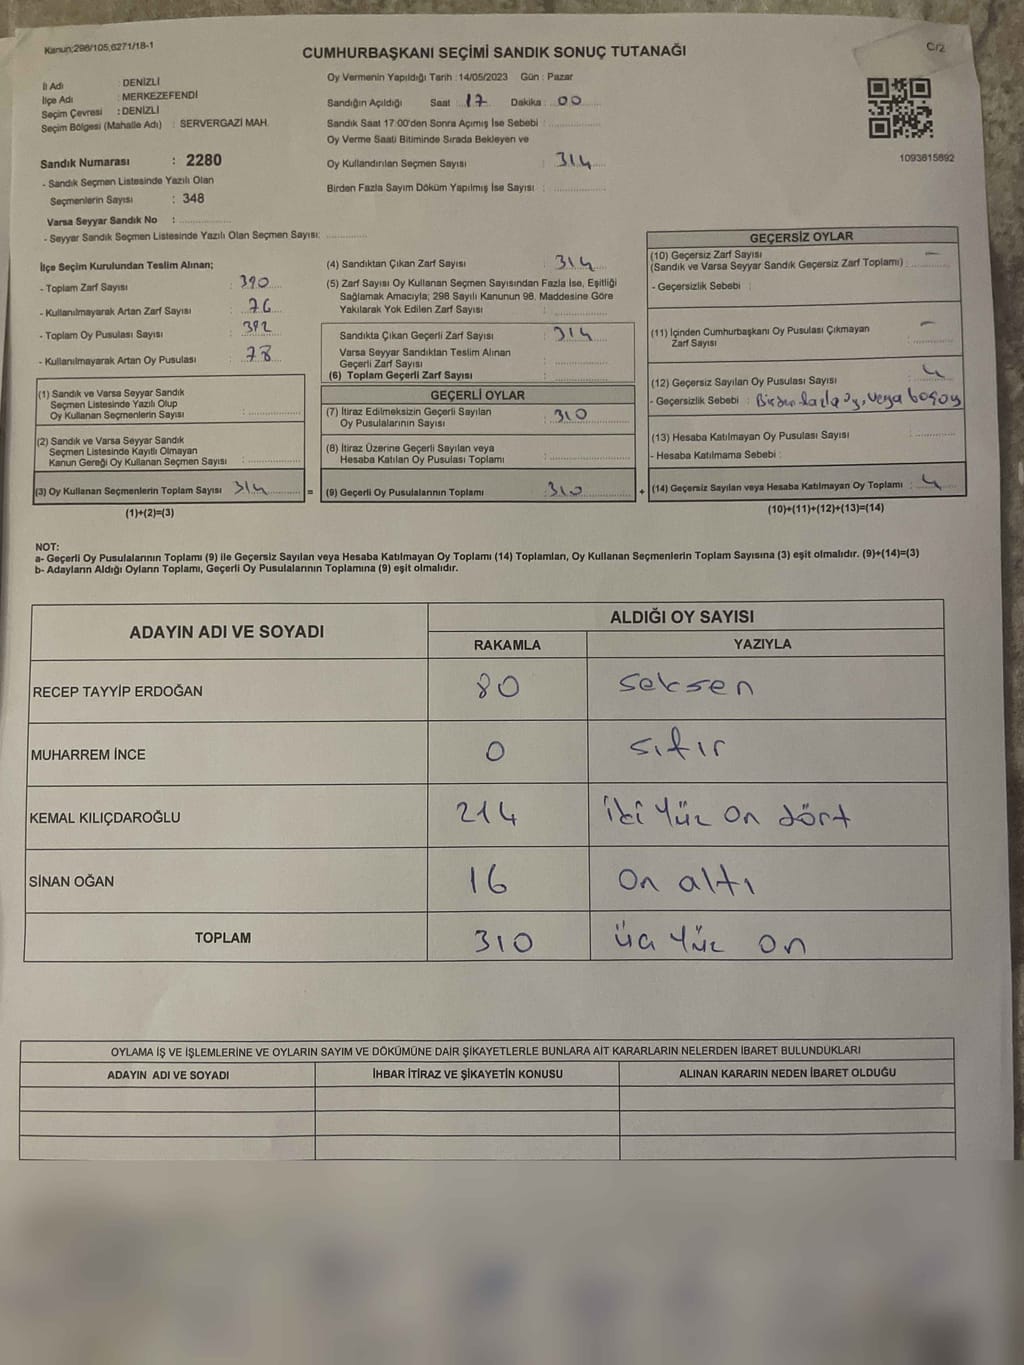 Kanun;298/105,6271/18-1
C/2
CUMHURBAŞKANI SEÇİMİ SANDIK SONUÇ TUTANAĞI
İl Adı : DENİZLİ
İlçe Adı : MERKEZEFENDİ
Seçim Çevresi : DENİZLİ
Seçim Bölgesi (Mahalle Adı) : SERVERGAZİ MAH.
Oy Vermenin Yapıldığı Tarih : 14/05/2023 Gün : Pazar
Sandığın Açıldığı Saat : 17 Dakika : 00
Sandık Saat 17:00'den Sonra Açımış İse Sebebi :
Oy Verme Saati Bitiminde Sırada Bekleyen ve
Oy Kullandırılan Seçmen Sayısı : 314
Birden Fazla Sayım Döküm Yapılmış İse Sayısı :
1093615892
Sandık Numarası : 2280
- Sandık Seçmen Listesinde Yazılı Olan
Seçmenlerin Sayısı : 348
Varsa Seyyar Sandık No :
- Seyyar Sandık Seçmen Listesinde Yazılı Olan Seçmen Sayısı:
İlçe Seçim Kurulundan Teslim Alınan;
- Toplam Zarf Sayısı : 390
- Kullanılmayarak Artan Zarf Sayısı : 76
- Toplam Oy Pusulası Sayısı : 392
- Kullanılmayarak Artan Oy Pusulası : 78
(1) Sandık ve Varsa Seyyar Sandık
Seçmen Listesinde Yazılı Olup
Oy Kullanan Seçmenlerin Sayısı :
(2) Sandık ve Varsa Seyyar Sandık
Seçmen Listesinde Kayıtlı Olmayan
Kanun Gereği Oy Kullanan Seçmen Sayısı :
(3) Oy Kullanan Seçmenlerin Toplam Sayısı 314 =
(1)+(2)=(3)
(4) Sandıktan Çıkan Zarf Sayısı : 314
(5) Zarf Sayısı Oy Kullanan Seçmen Sayısından Fazla İse, Eşitliği
Sağlamak Amacıyla; 298 Sayılı Kanunun 98. Maddesine Göre
Yakılarak Yok Edilen Zarf Sayısı :
Sandıkta Çıkan Geçerli Zarf Sayısı : 314
Varsa Seyyar Sandıktan Teslim Alınan
Geçerli Zarf Sayısı :
(6) Toplam Geçerli Zarf Sayısı :
GEÇERLİ OYLAR
(7) İtiraz Edilmeksizin Geçerli Sayılan
Oy Pusulalarının Sayısı : 310
(8) İtiraz Üzerine Geçerli Sayılan veya
Hesaba Katılan Oy Pusulası Toplamı :
(9) Geçerli Oy Pusulalarının Toplamı : 310 +
GEÇERSİZ OYLAR
(10) Geçersiz Zarf Sayısı
(Sandık ve Varsa Seyyar Sandık Geçersiz Zarf Toplamı) : —
- Geçersizlik Sebebi :
(11) İçinden Cumhurbaşkanı Oy Pusulası Çıkmayan
Zarf Sayısı : —
(12) Geçersiz Sayılan Oy Pusulası Sayısı : 4
- Geçersizlik Sebebi : Birden fazla oy, veya boş oy
(13) Hesaba Katılmayan Oy Pusulası Sayısı :
- Hesaba Katılmama Sebebi :
(14) Geçersiz Sayılan veya Hesaba Katılmayan Oy Toplamı : 4
(10)+(11)+(12)+(13)=(14)
NOT:
a- Geçerli Oy Pusulalarının Toplamı (9) ile Geçersiz Sayılan veya Hesaba Katılmayan Oy Toplamı (14) Toplamları, Oy Kullanan Seçmenlerin Toplam Sayısına (3) eşit olmalıdır. (9)+(14)=(3)
b- Adayların Aldığı Oyların Toplamı, Geçerli Oy Pusulalarının Toplamına (9) eşit olmalıdır.
ADAYIN ADI VE SOYADI
ALDIĞI OY SAYISI
RAKAMLA YAZIYLA
RECEP TAYYİP ERDOĞAN 80 seksen
MUHARREM İNCE 0 sıfır
KEMAL KILIÇDAROĞLU 214 iki yüz on dört
SİNAN OĞAN 16 on altı
TOPLAM 310 üç yüz on
OYLAMA İŞ VE İŞLEMLERİNE VE OYLARIN SAYIM VE DÖKÜMÜNE DAİR ŞİKAYETLERLE BUNLARA AİT KARARLARIN NELERDEN İBARET BULUNDUKLARI
ADAYIN ADI VE SOYADI İHBAR İTİRAZ VE ŞİKAYETİN KONUSU ALINAN KARARIN NEDEN İBARET OLDUĞU